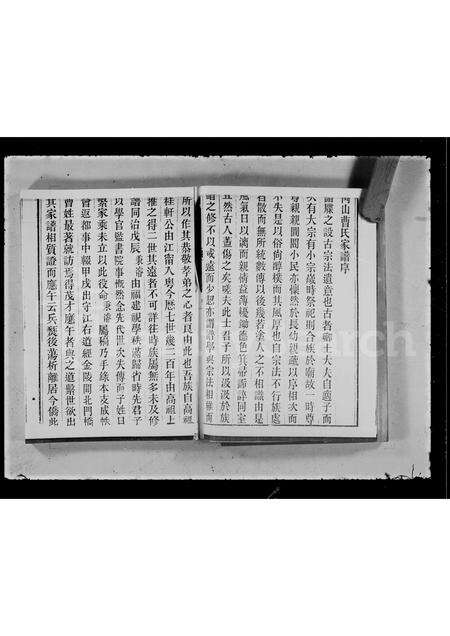 山曹氏家譜序
譜牒之設古宗法遺意也古者卿士大夫自適子而
次有大宗有小宗歲時祭祀則合族於廟故一時尊
尊親親閭閻小民亦懍然於長幼親疏以序相次而
不失是以俗尚醇樸而其風厚也自宗法不行族處
者散而無所統數傳以後幾若塗人之不相識由是
氣日以漓而親情益薄耰鋤德色箕帚誶語同室
且然古人蓋傷之矣嗟夫此士君子所以汲汲於族
譜之修不以或遠而少恕亦謂譜學與宗法相維而
所以作其恭敬孝弟之心者良由此也吾族自高祖
桂軒公由江甯入粵今歷七世幾二百年由高祖上
推之得二世其遠者不可詳往時族屬無多未及修
譜同治戊辰秉濬由福建視學秩滿歸省時先君子
以學官監書院事慨然念先代世次失傳而子姓日
繁家乘未立以此役命秉濬屬稿乃手錄本支成帙
曾返都事中輟甲戌出守江右道經金陵聞北門橋
曹姓最著遂訪焉得茂才應午者與之道黯世欲出
其家譜相質證而應午云兵燹後蕩析離居今僑此